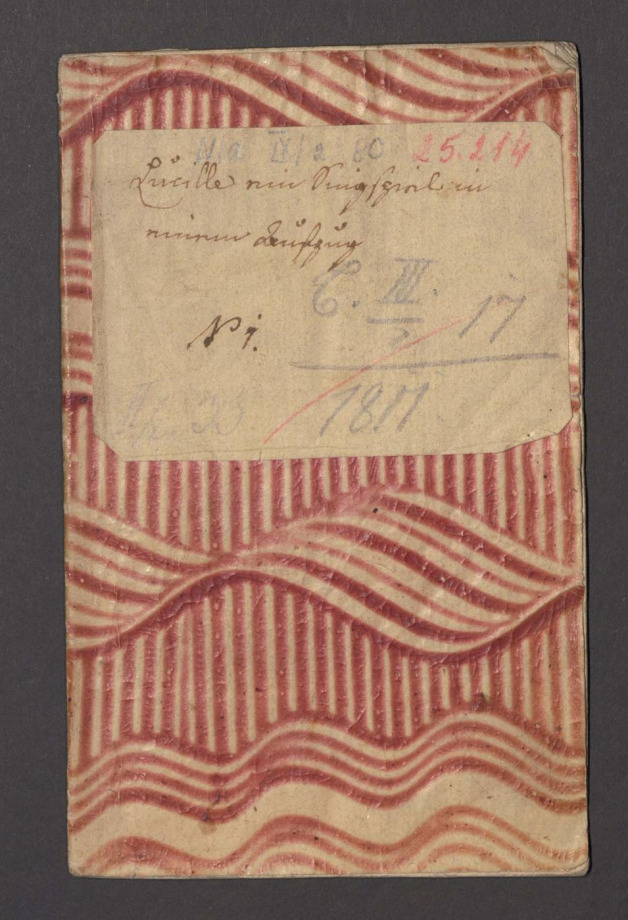 N.a IX/2 80 25.214
Lucille ein Singspiel in
einem Aufzug
N 1.
C. III. 17
1817
33